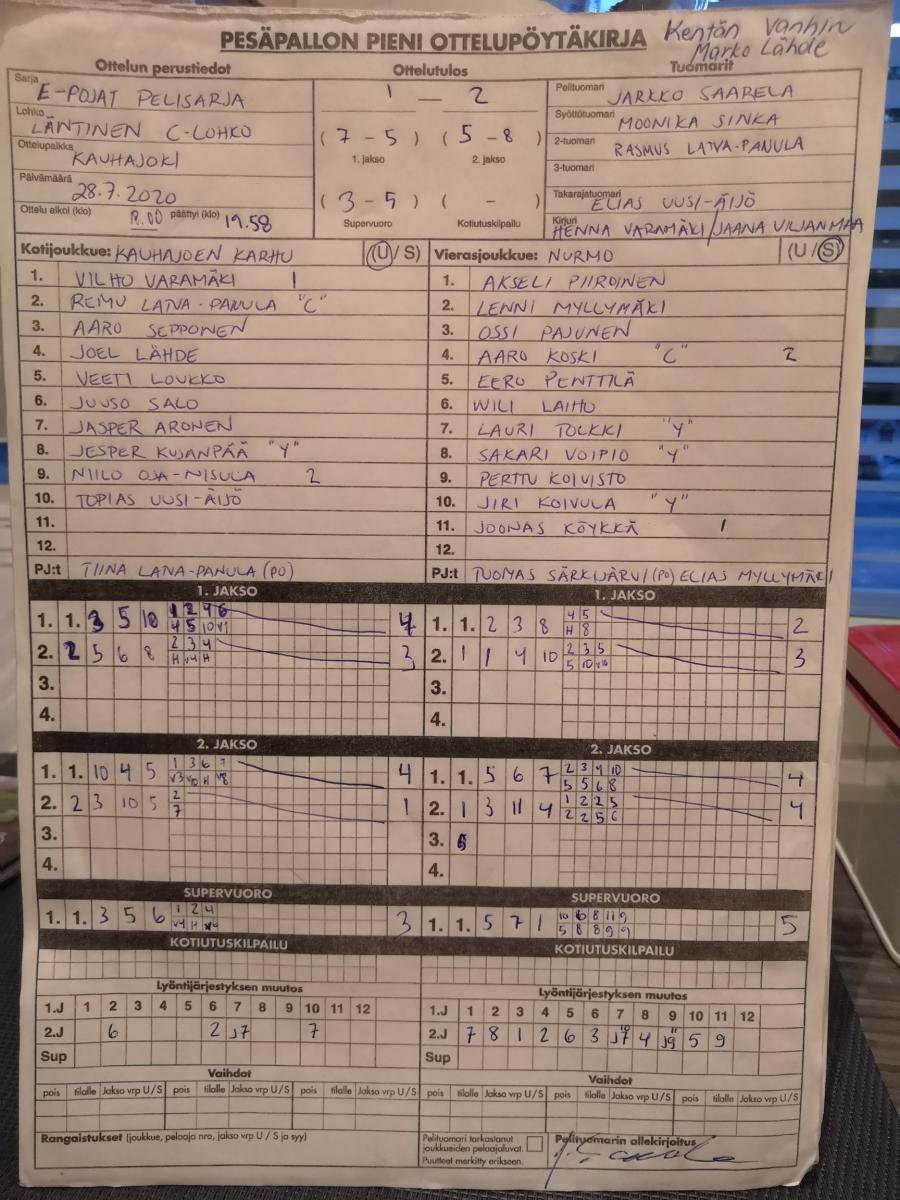 Kentän vanhin
Marko Lähde
PESÄPALLON PIENI OTTELUPÖYTÄKIRJA
Ottelun perustiedot
Sarja E-POJAT PELISARJA
Lohko LÄNTINEN C-LOHKO
Ottelupaikka KAUHAJOKI
Päivämäärä 28.7.2020
Ottelu alkoi (klo) 18.00 päättyi (klo) 19.58
Ottelutulos
1 — 2
( 7 - 5 ) ( 5 - 8 )
1. jakso 2. jakso
( 3 - 5 ) ( - )
Supervuoro Kotiutuskilpailu
Tuomarit
Pelituomari JARKKO SAARELA
Syöttötuomari MOONIKA SINKA
2-tuomari RASMUS LATVA-PANULA
3-tuomari
Takarajatuomari ELIAS UUSI-ÄIJÖ
Kirjuri HENNA VARAMÄKI/JAANA VILJANMAA
Kotijoukkue: KAUHAJOEN KARHU (U/S)
1. VILHO VARAMÄKI 1
2. REMU LATVA-PANULA "C"
3. AARO SEPPONEN
4. JOEL LÄHDE
5. VEETI LOUKKO
6. JUUSO SALO
7. JASPER ARONEN
8. JESPER KUJANPÄÄ "Y"
9. NIILO OJA-NISULA 2
10. TOPIAS UUSI-ÄIJÖ
11.
12.
PJ:t TIINA LATVA-PANULA (PO)
Vierasjoukkue: NURMO (U/S)
1. AKSELI PIIROINEN
2. LENNI MYLLYMÄKI
3. OSSI PAJUNEN
4. AARO KOSKI "C" 2
5. EERO PENTTILÄ
6. WILI LAIHO
7. LAURI TOLKKI "Y"
8. SAKARI VOIPIO "Y"
9. PERTTU KOIVISTO
10. JIRI KOIVULA "Y"
11. JOONAS KÖYKKÄ 1
12.
PJ:t TUOMAS SÄRKIJÄRVI (PO) ELIAS MYLLYMÄKI
1. JAKSO
1. 1. 3 5 10 1 2 4 6 4
4 5 10 V1
2. 2 5 6 8 2 3 4 3
H V4 H
3.
4.
1. JAKSO
1. 1. 2 3 8 4 5 2
H 8
2. 1 1 4 10 2 3 5 3
5 10 V10
3.
4.
2. JAKSO
1. 1. 10 4 5 1 3 6 7 4
V3 V10 H V8
2. 2 3 10 5 2 1
7
3.
4.
2. JAKSO
1. 1. 5 6 7 2 3 4 10 4
5 5 6 8
2. 1 3 11 4 1 2 2 5 4
2 2 5 6
3.
4.
SUPERVUORO
1. 1. 3 5 6 1 2 4 3
V4 H
SUPERVUORO
1. 1. 5 7 1 10 8 11 9 5
5 8 8 9 9
KOTIUTUSKILPAILU
KOTIUTUSKILPAILU
Lyöntijärjestyksen muutos
1.J 1 2 3 4 5 6 7 8 9 10 11 12
2.J 6 2 J7 7
Sup
Lyöntijärjestyksen muutos
1.J 1 2 3 4 5 6 7 8 9 10 11 12
2.J 7 8 1 2 6 3 J7 10 4 J9 11 5 9
Sup
Vaihdot
pois tilalle Jakso vrp U/S pois tilalle Jakso vrp U/S
Vaihdot
pois tilalle Jakso vrp U/S pois tilalle Jakso vrp U/S
Rangaistukset (joukkue, pelaaja nro, jakso vrp U / S ja syy)
Pelituomari tarkastanut
joukkueiden pelaajaluvat.
Puutteet merkitty erikseen.
Pelituomarin allekirjoitus